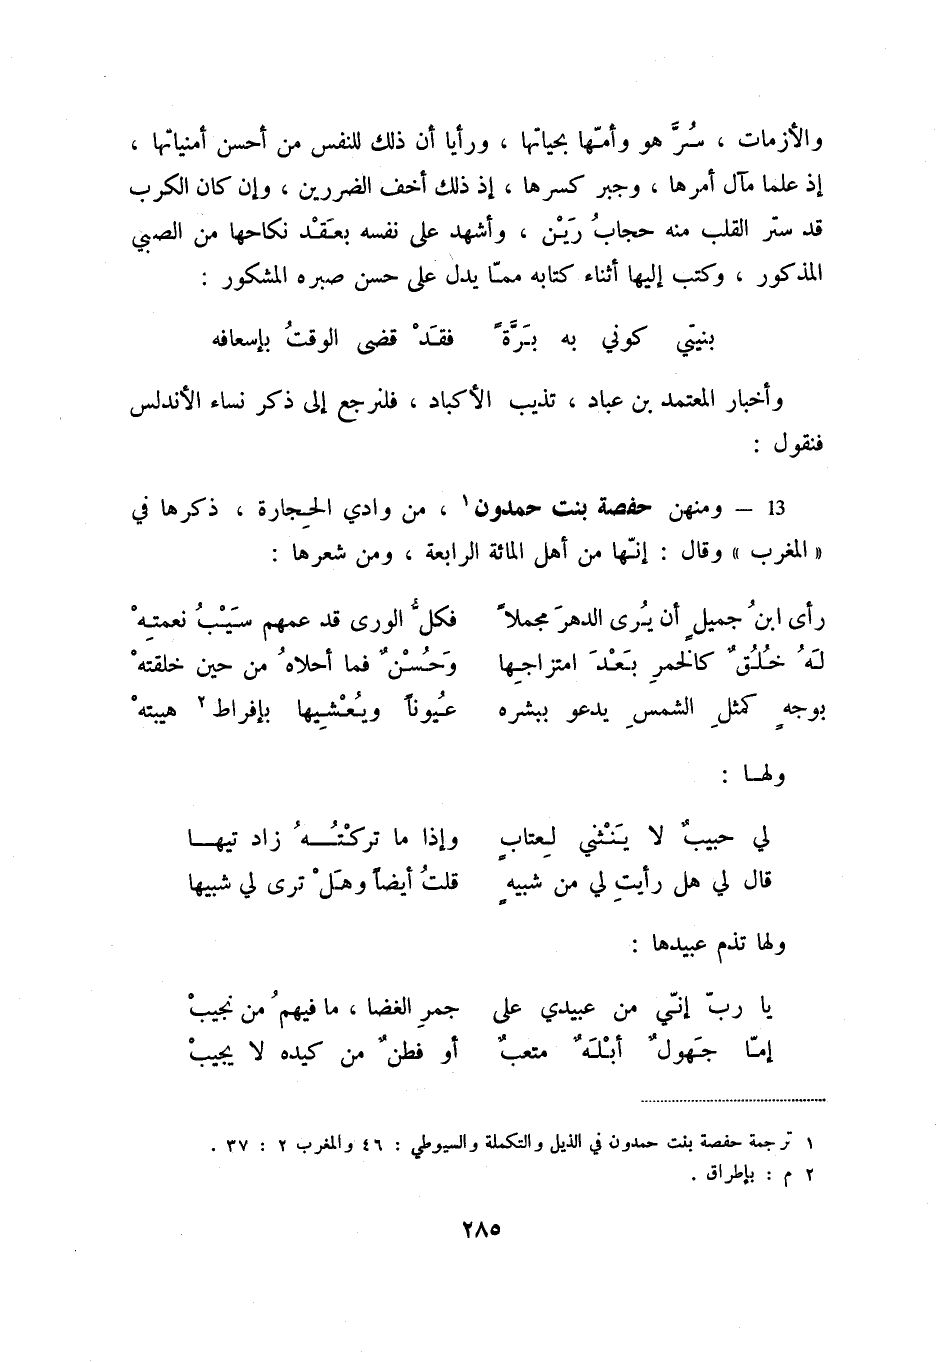 والأزمات ، سُرَّ هو وأمّها بحياتها ، ورأيا أن ذلك للنفس من أحسن أمنياتها ،
إذ علما مآل أمرها ، وجبر كسرها ، إذ ذلك أخف الضررين ، وإن كان الكرب
قد ستر القلب منه حجابُ رَيْن ، وأشهد على نفسه بعَقْد نكاحها من الصبي
المذكور ، وكتب إليها أثناء كتابه ممّا يدل على حسن صبره المشكور :
بنيتي كوني به بَرَّةً فقَدْ قضى الوقتُ بإسعافه
وأخبار المعتمد بن عباد ، تذيب الأكباد ، فلنرجع إلى ذكر نساء الأندلس
فنقول :
13 – ومنهن حفصة بنت حمدون١ ، من وادي الحِجارة ، ذكرها في
« المغرب » وقال : إنّها من أهل المائة الرابعة ، ومن شعرها :
رأى ابنُ جميلٍ أن يُرى الدهرَ مجملاً فكلُّ الورى قد عمهم سَيْبُ نعمتِهْ
لَهُ خُلُقٌ كالخمرِ بَعْدَ امتزاجِها وَحُسْنٌ فما أحلاهُ من حين خلقتهْ
بوجهٍ كمثلِ الشمسِ يدعو ببشره عُيوناً ويُعْشِيها بإفراط٢ هيبتهْ
ولهـا :
لي حبيبٌ لا يَنْثني لعِتابٍ وإذا ما تركْتُـهُ زاد تيهـا
قال لي هل رأيتِ لي من شبيهٍ قلتُ أيضاً وهَلْ ترى لي شبيها
ولها تذم عبيدها :
يا ربّ إنّي من عبيدي على جمرِ الغضا ، ما فيهمُ من نجيبْ
إمّا جَهولٌ أبْلَهٌ متعبٌ أو فطنٌ من كيده لا يجيبْ
١ ترجمة حفصة بنت حمدون في الذيل والتكملة والسيوطي : ٤٦ والمغرب ٢ : ٣٧ .
٢ م : بإطراق .
٢٨٥